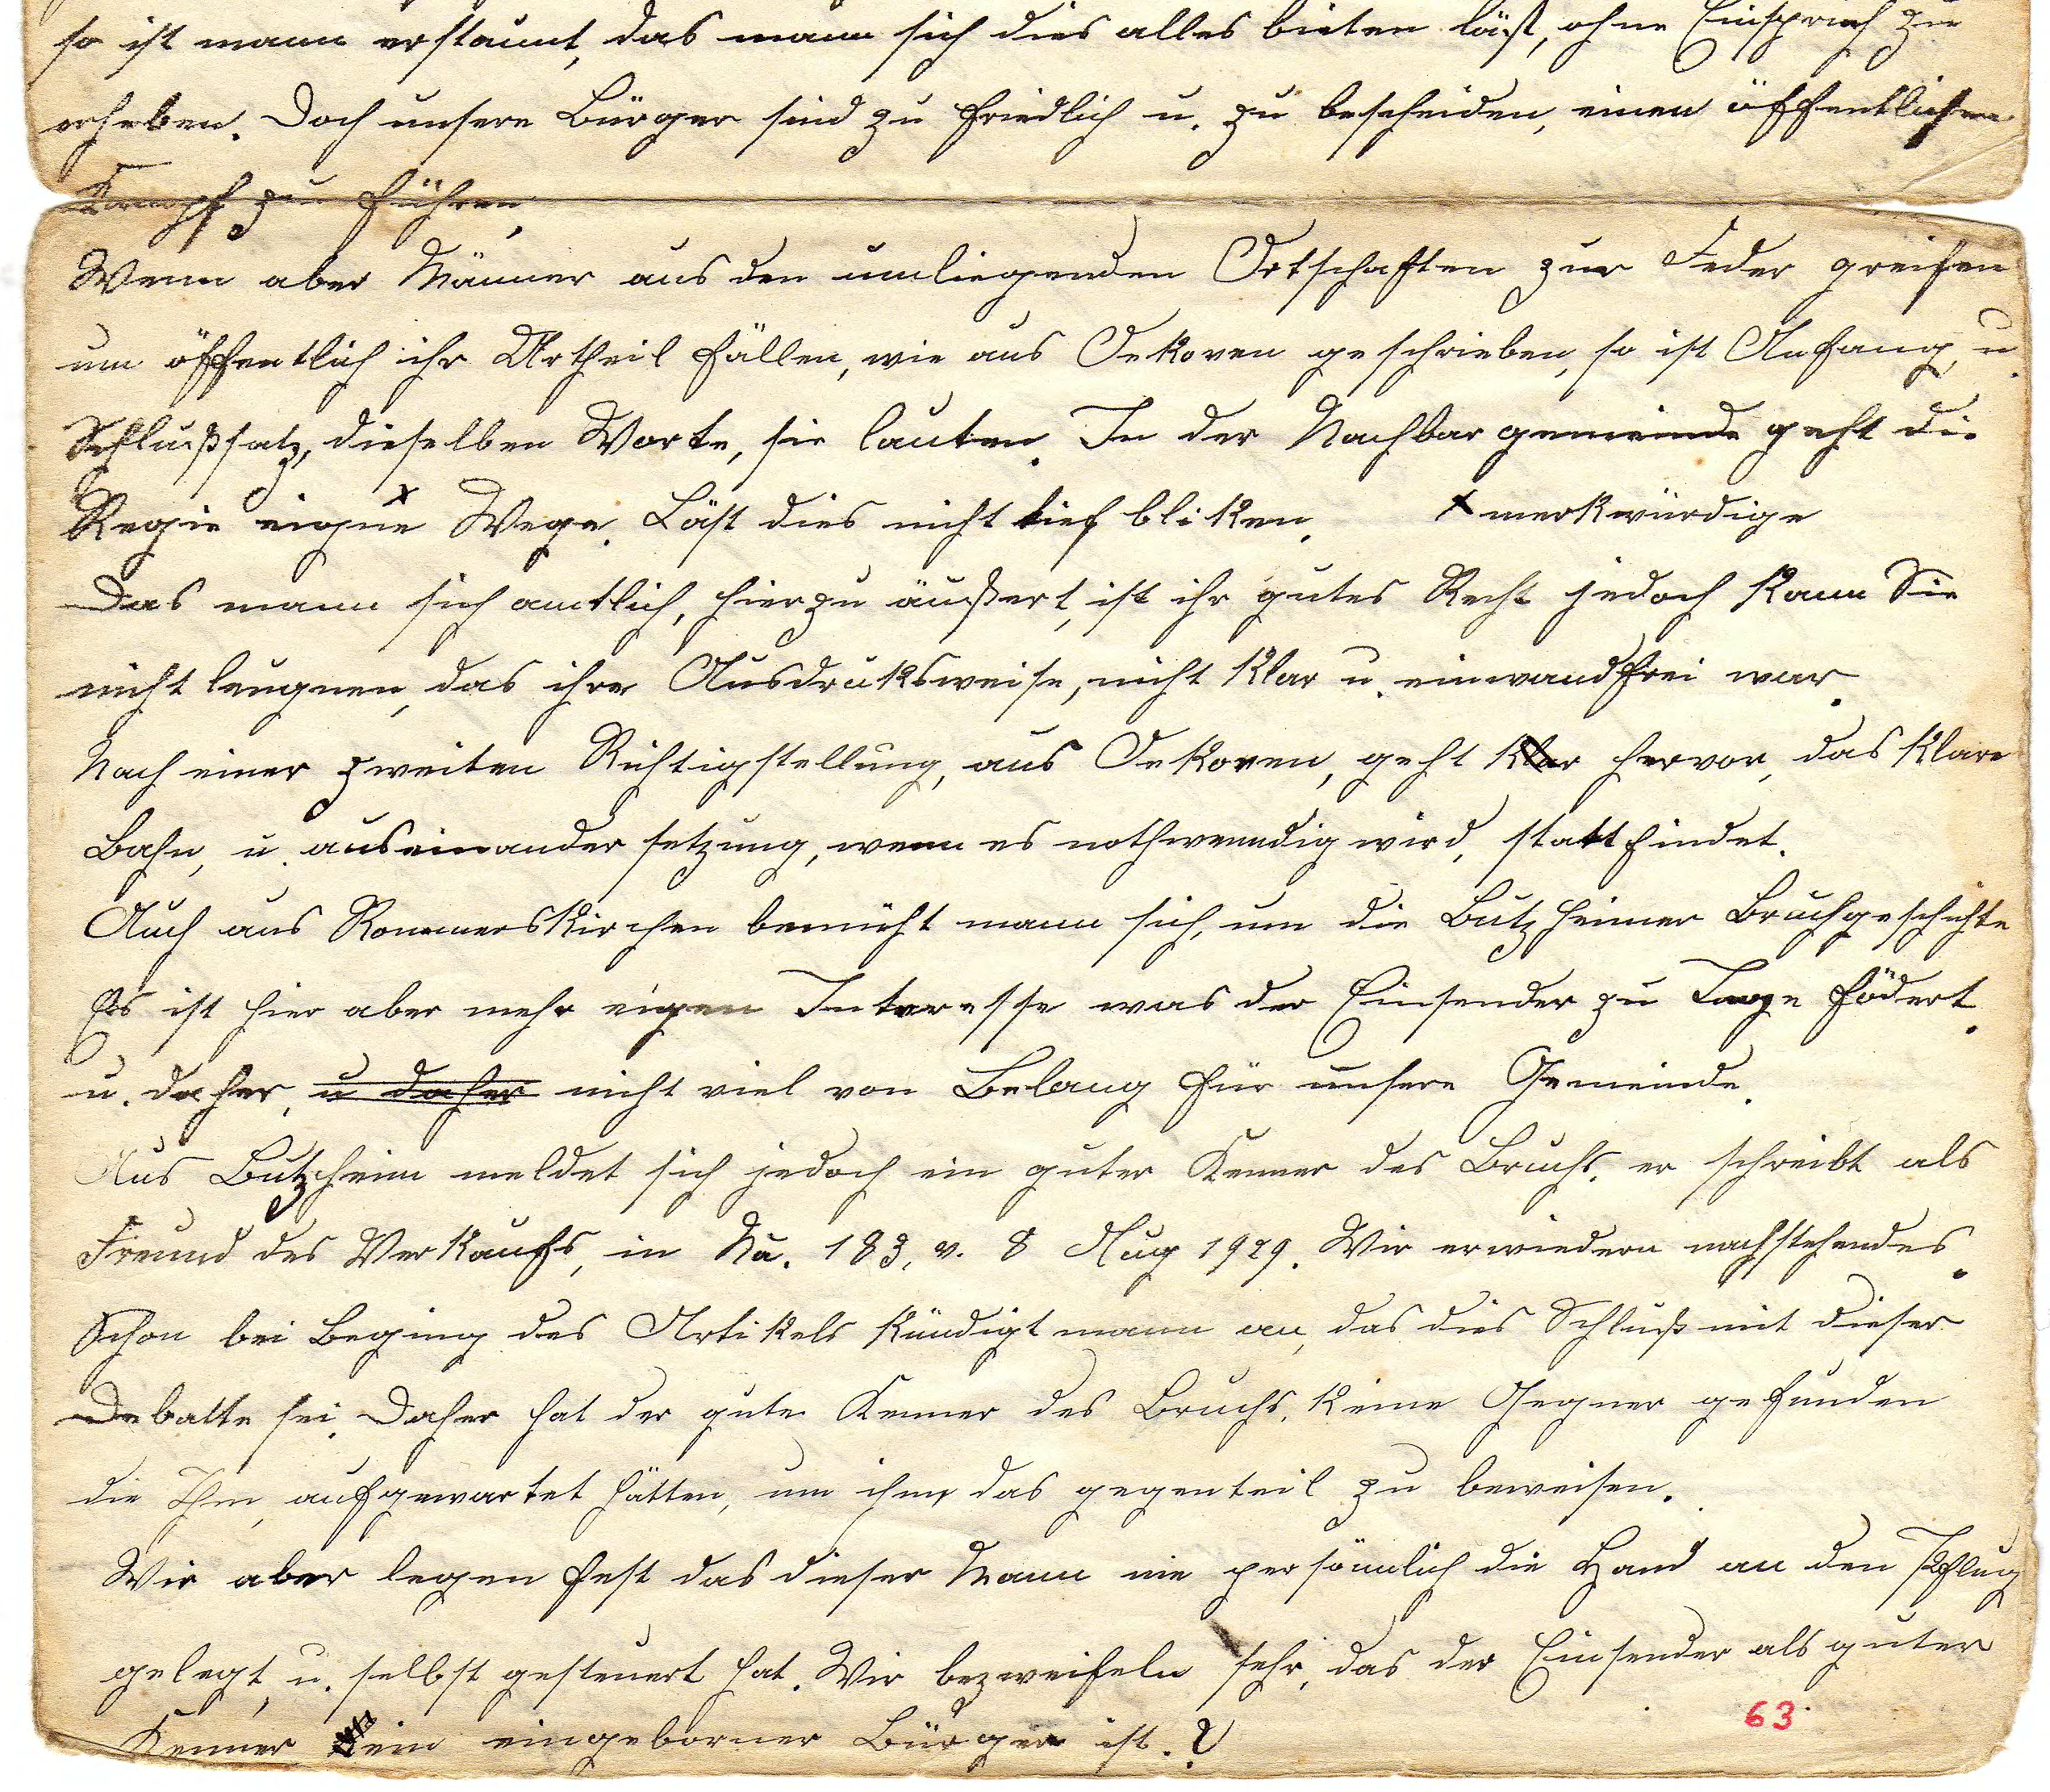 so ist mann erstaunt, das mann sich dies alles bieten läßt, ohne Einspruch zu
erheben. Doch unsere Bürger sind zu friedlich u. zu bescheiden, einen öffentlichen
Kampf zu führen,
Wenn aber Männer aus den umliegenden Ortschaften zur Feder greifen
um öffentlich ihr Urtheil fällen, wie aus Oekoven geschrieben, so ist Anfang, u.
Schlußsatz, dieselben Worte, sie lauten. In der Nachbargemeinde geht die
Regie eigne x Wege. Läst dies nicht tief bliken. x merkwürdige
Das mann sich amtlich, hierzu äußert, ist ihr gutes Recht jedoch kann Sie
nicht leugnen, das ihre Ausdruksweise, nicht klar u. einwandfrei war.
Nach einer zweiten Richtigstellung, aus Oekoven, geht klar hervor, das klare
Bahn, u. auseinander setzung, wenn es nothwenndig wird, stattfindet.
Auch aus Rommerskirchen bemüht mann sich, um die Butzheimer Bruchgeschichte
Es ist hier aber mehr eigen Interesse was der Einsender zu Tage födert.
u. daher, u daher nicht viel von Belang für unsere Gemeinde.
Aus Butzheim meldet sich jedoch ein guter Kenner des Bruchs, er schreibt als
Freund des Verkaufs, in Nu. 183, v. 8 Aug 1929. Wir erwiedern nachstehendes.
Schon bei Beging des Artikels kündigt mann an, das dies Schluß mit dieser
Debatte sei. Daher hat der gute Kenner des Bruchs, keine Gegner gefunden
die Ihm, aufgewartet hätten, um ihm das gegenteil zu beweisen.
Wir aber legen fest das dieser Mann nie persönnlich die Hand an den Pflug
gelegt, u. selbst gesteuert hat. Wir bezweifeln sehr, das der Einsender als guter
Kenner ein eingeborner Bürger ist.?
63